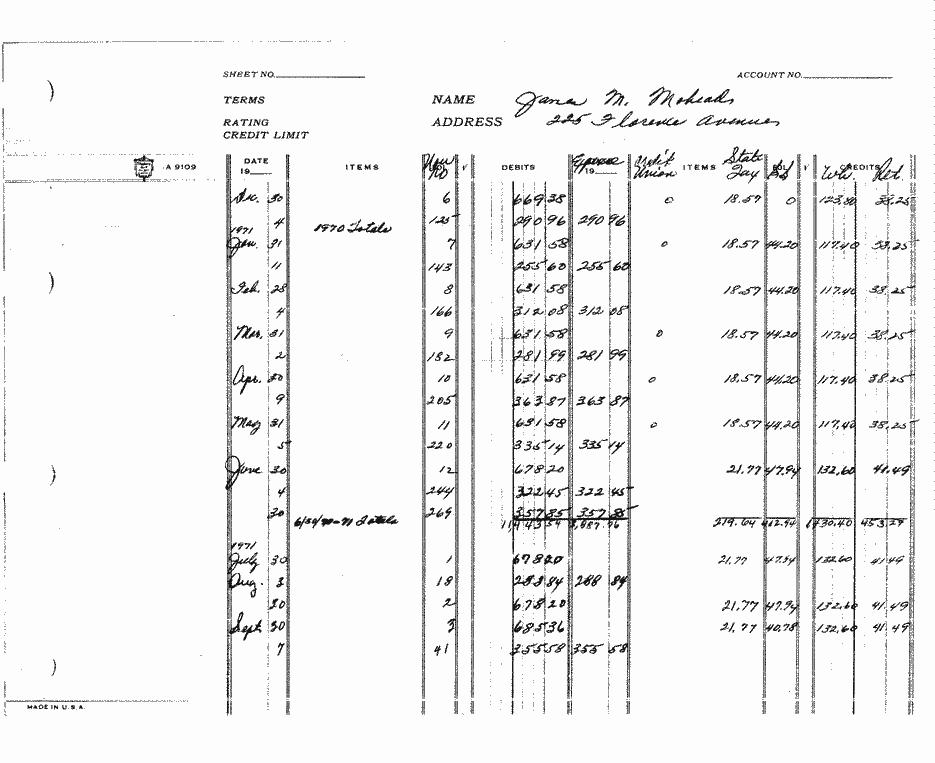 SHEET NO. ACCOUNT NO.
TERMS NAME James M. Moheads
RATING ADDRESS 225 Florence Avenue
CREDIT LIMIT
A 9109 DATE 19 ITEMS Vou No √ DEBITS Expense 19 Credit Union ITEMS State Tax √ CREDITS W.H. Ret.
Dec. 30 6 669 38 0 18.57 0 123.80 38.25
4 125 290 96 290 96
1971 1970 Totals
Jan. 31 7 631 58 0 18.57 44.20 117.40 38.25
11 143 255 60 255 60
Feb. 28 8 631 58 18.57 44.20 117.40 38.25
4 166 312 08 312 08
Mar. 31 9 631 58 0 18.57 44.20 117.40 38.25
2 182 281 99 281 99
Apr. 30 10 631 58 0 18.57 44.20 117.40 38.25
9 205 363 87 363 87
May 31 11 631 58 0 18.57 44.20 117.40 38.25
5 220 335 14 335 14
June 30 12 678 20 21.77 47.94 132.60 41.49
4 244 322 45 322 45
30 269 357 85 357 85
Totals 453.29
1971
July 30 1 678 20 21.77 47.94 132.60 41.49
Aug. 3 18 288 84 288 84
30 2 678 20 21.77 47.94 132.60 41.49
Sept 30 3 685 36 21.77 40.78 132.60 41.49
7 41 355 58 355 58
MADE IN U.S.A.